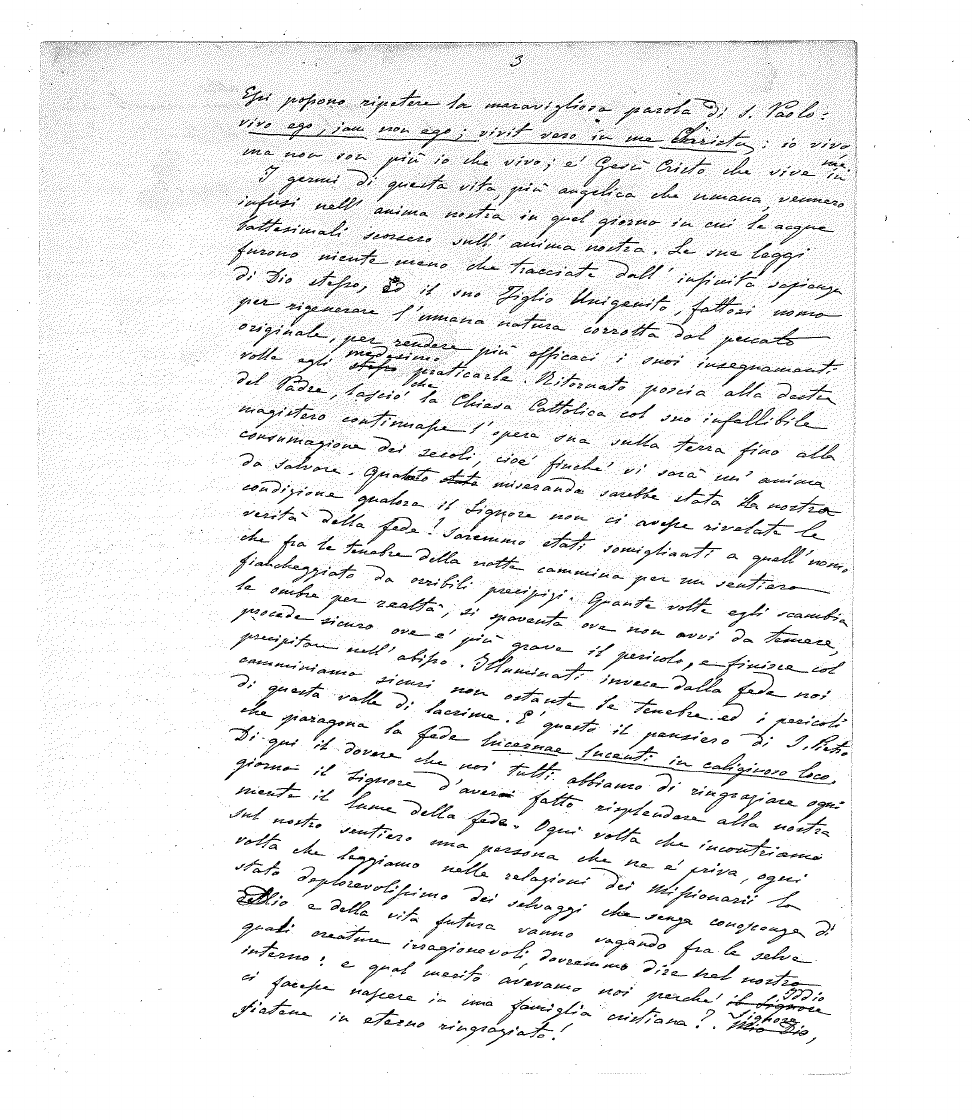 3
Essi possono ripetere la maravigliosa parola di S. Paolo:
vivo ego, jam non ego; vivit vero in me Christus: io vivo
ma non son più io che vivo; è Gesù Cristo che vive in me.
I germi di questa vita, più angelica che umana, vennero
infusi nell' anima nostra in quel giorno in cui le acque
battesimali scorsero sull' anima nostra. Le sue leggi
furono niente meno che tracciate dall' infinita sapienza
di Dio stesso, ed il suo Figlio Unigenito, fattosi uomo
per rigenerare l'umana natura corrotta dal peccato
originale, per rendere più efficaci i suoi insegnamenti
volle egli stesso medesimo praticarle. Ritornato poscia alla destra
del Padre, lasciò che la Chiesa Cattolica col suo infallibile
magistero continuasse l'opera sua sulla terra fino alla
consumazione dei secoli, cioè finché vi sarà un' anima
da salvare. Quanto miseranda sarebbe stata la nostra
condizione qualora il Signore non ci avesse rivelate le
verità della fede! Saremmo stati somiglianti a quell' uomo
che fra le tenebre della notte cammina per un sentiero
fiancheggiato da orribili precipizi. Quante volte egli scambia
le ombre per realtà, si spaventa ove non avvi da temere,
procede sicuro ove è più grave il pericolo, e finisce col
precipitare nell' abisso. Illuminati invece dalla fede noi
camminiamo sicuri non ostante le tenebre ed i pericoli
di questa valle di lacrime. E' questo il pensiero di S. Pietro
che paragona la fede lucernae lucenti in caliginoso loco.
Di qui il dovere che noi tutti abbiamo di ringraziare ogni
giorno il Signore d'aver fatto risplendere alla nostra
mente il lume della fede. Ogni volta che incontriamo
sul nostro sentiero una persona che ne è priva, ogni
volta che leggiamo nelle relazioni dei Missionarii lo
stato deplorevolissimo dei selvaggi che senza conoscenza di
Dio e della vita futura vanno vagando fra le selve
quali creature irragionevoli, dovremmo dire nel nostro
interno: e qual merito avevamo noi perché il Signore Iddio
ci facesse nascere in una famiglia cristiana? Mio Dio, Signore,
siatene in eterno ringraziato!